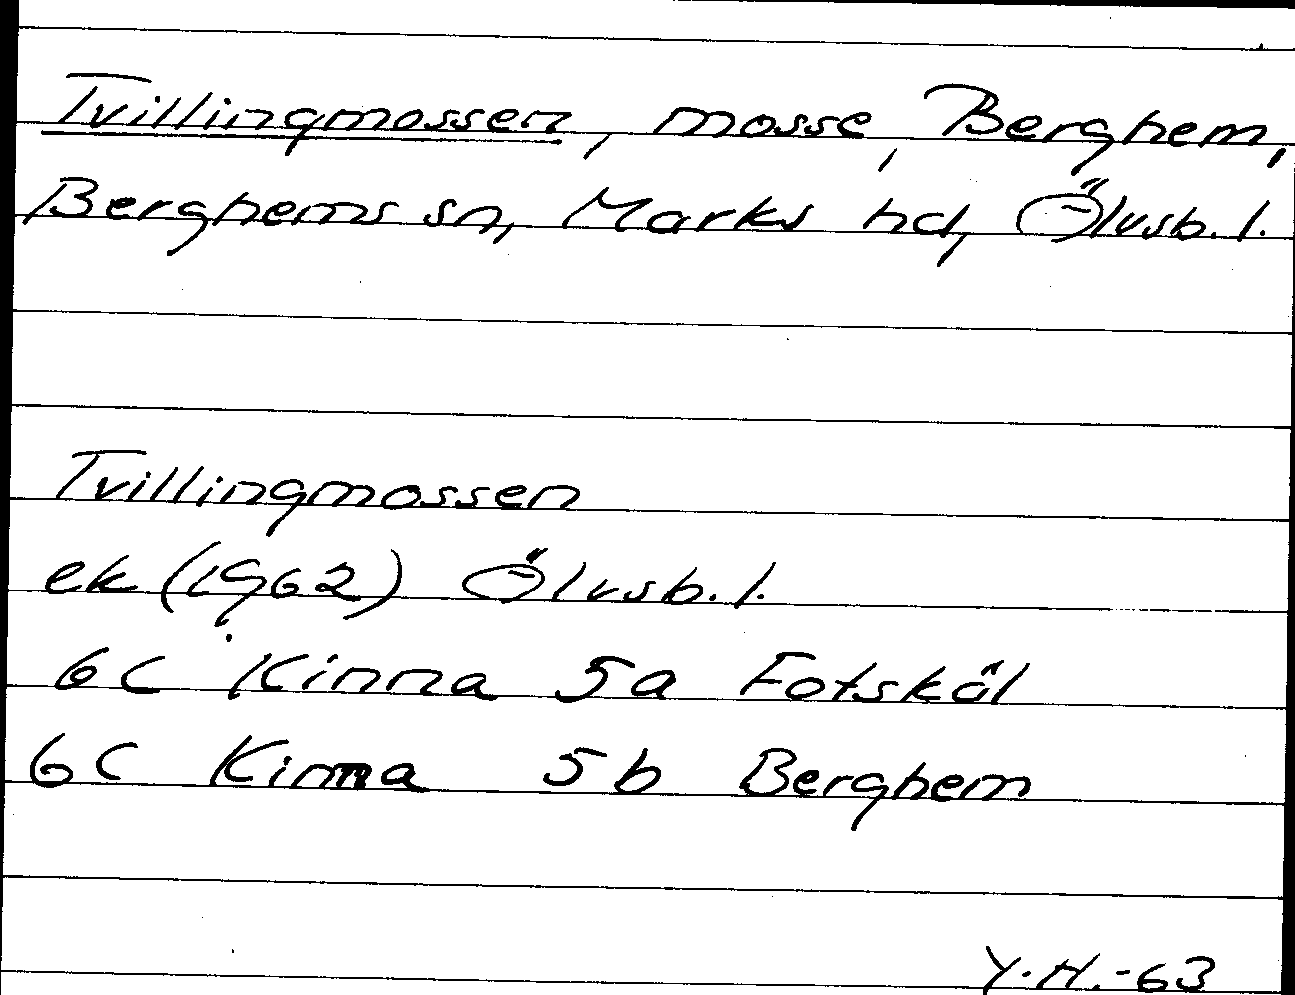 Tvillingmossen, mosse, Berghem,
Berghems sn, Marks hd, Älvsb. l.
Tvillingmossen
ek (1962) Älvsb. l.
6C Kinna 5a Fotskäl
6C Kinna 5b Berghem
Y.H.-63